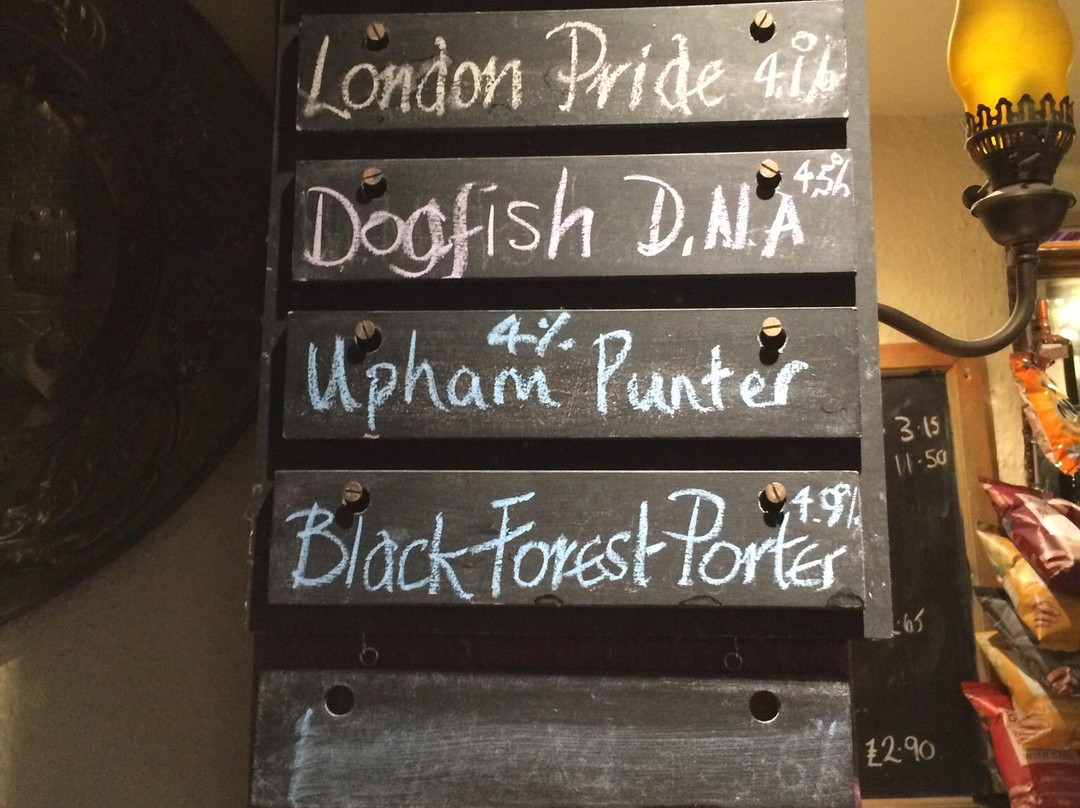 London Pride 4.1%
Dogfish D.N.A 4.5%
4%
Upham Punter
Black Forest Porter 4.9%
3.15
11.50
.65
£2.90